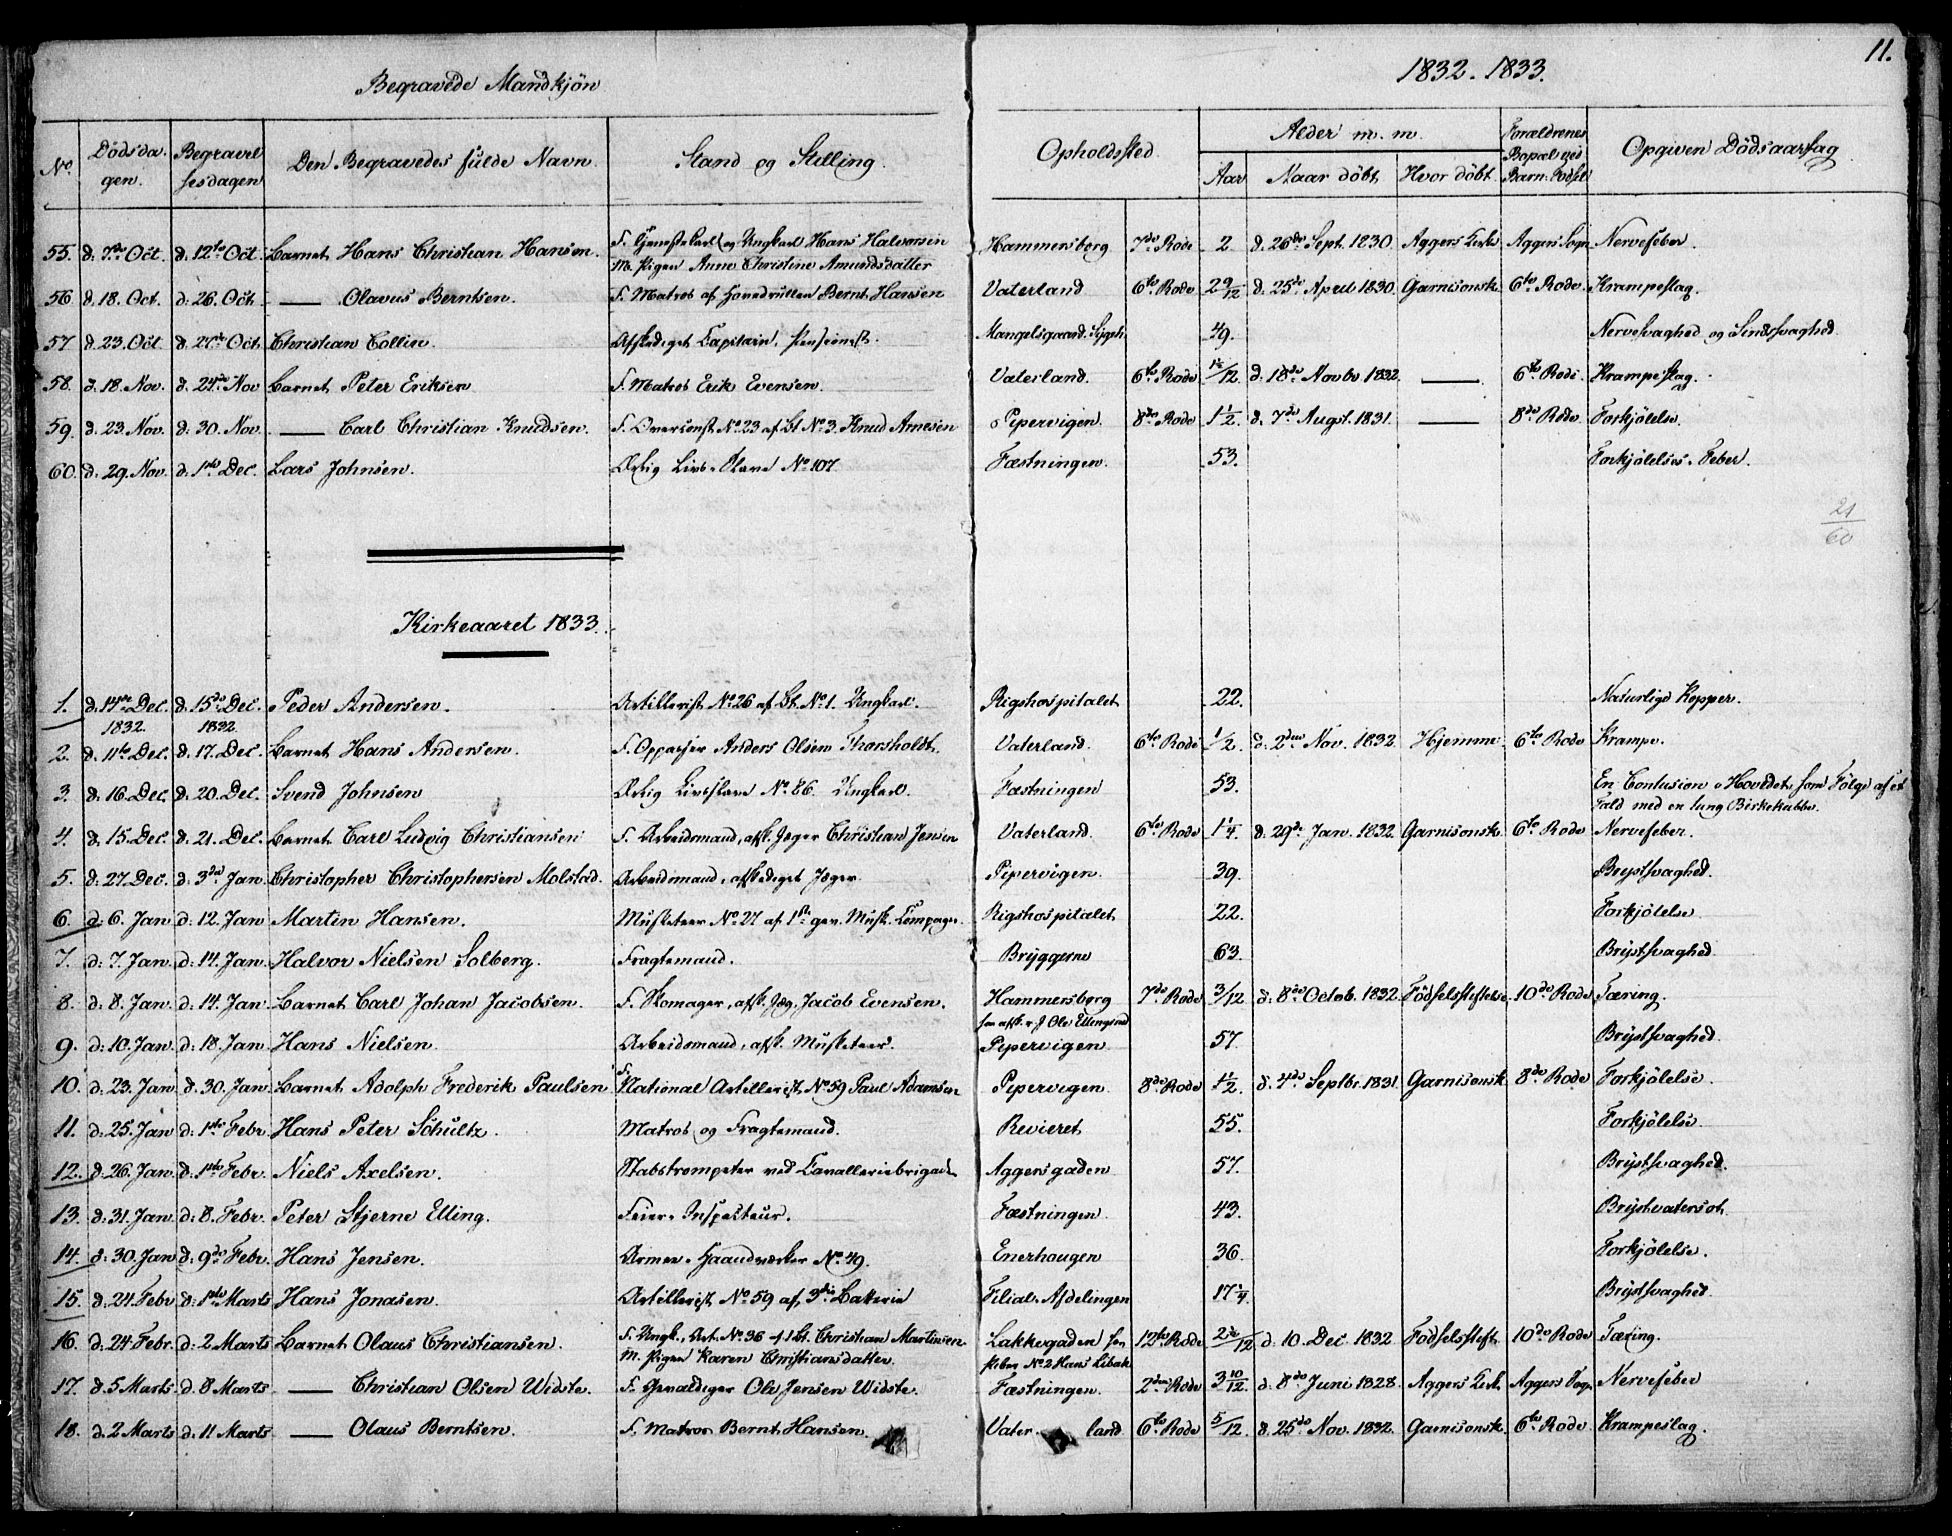 Begravede Mandkjøn
1832. 1833.
11.
No. Dödsdagen. Begravelsesdagen Den Begravedes fulde Navn. Stand og Stilling. Opholdssted. Alder m. m. Aar Naar döbt. Hvor döbt. Forældrenes Bopæl ved Barn: Fødsel Opgiven Dödsaarsag
55. d. 7de Oct. d. 12te Oct. Barnet Hans Christian Hansen. F. Tjenestekarl og Ungkarl Hans Halvorsen M. Pigen Anne Christine Amundsdatter Hammersborg 7de Rode 2. d. 26de Sept. 1830. Aggers Kirke Aggers Sogn Nervefeber.
56 d. 18. Oct. d. 26. Oct. — Olavus Berntsen. F. Matros af Hovedrullen Bernt Hansen Vaterland 6te Rode 2 9/12 d. 25de April 1830. Garnisonsk. 6te Rode. Krampeslag.
57 d. 23. Oct. d. 27de Oct. Christian Collin. Afskediget Capitain, Pensionist. Mangelsgaard. Sygeh. 49. Nervesvaghed og Sindssvaghed.
58. d. 18. Nov. d. 24de Nov Barnet Peter Eriksen F. Matros Erik Evensen. Vaterland. 6te Rode /12. d. 18de Novbr 1832. — 6te Rode. Krampeslag.
59. d. 23. Nov. d. 30. Nov — Carl Christian Knudsen. F. Overconst. No. 23 af Bt. No. 3. Knud Arnesen Pipervigen. 8de Rode 1 1/2. d. 7de Augst. 1831. — 8de Rode. Forkjölelse.
60. d. 29. Nov. d. 1ste Dec. Lars Johnsen. Ærlig Livs-Slave No. 107 Fæstningen. 53. Forkjölelses-Feber.
21/60
Kirkeaaret 1833.
1. d. 14de Dec. 1832. d. 15de Dec. 1832 Peder Andersen. Artillerist No. 26 af Bt. No. 1. Ungkarl. Rigshospitalet 22. Naturlige Kopper.
2. d. 11te Dec. d. 17. Dec. Barnet Hans Andersen. F. Oppasser Anders Olsen Thorsholdt. Vaterland. 6te Rode 1/2. d. 2den Nov. 1832. Hjemme. 6te Rode Krampe.
3. d. 16. Dec. d. 20. Dec. Svend Johnsen Ærlig Livsslave No. 86. Ungkarl. Fæstningen 53. En Contusion i Hovedet, som Følge af et Fald med en tung Birkekubbe.
4. d. 15. Dec. d. 21. Dec. Barnet Carl Ludvig Christiansen F. Arbeidsmand, afsk. Jæger Christian Jensen Vaterland. 6te Rode 1 1/4. d. 29de Jan. 1832. Garnisonsk. 6te Rode Nervefeber.
5. d. 27. Dec. d. 3die Jan. Christopher Christophersen Molstad. Arbeidsmand, afskediget Jæger Pipervigen. 39. Brystsvaghed.
6. d. 6. Jan d. 12. Jan Martin Hansen. Musketeer No. 27 af 1ste gev. Musk. Compagni. Rigshospitalet 22. Forkjölelse
7. d. 7. Jan. d. 14. Jan. Halvor Nielsen Solberg. Fragtemand. Bryggerne 63. Brystsvaghed
8. d. 8. Jan. d. 14. Jan Barnet Carl Johan Jacobsen. F. Skomager, afsk. Jæg. Jacob Evensen. Hammersborg 7de Rode 3/12 d. 8de Octob. 1832. Födselsstiftelse. 10de Rode Tæring.
9. d. 10. Jan. d. 18. Jan. Hans Nielsen. Arbeidsmand, afsk. Musketeer. Pipervigen 57. Brystsvaghed.
10. d. 23. Jan d. 30. Jan. Barnet Adolph Frederik Paulsen F. National Artillerist No. 59 Paul Adamsen Pipervigen 8de Rode 1 1/2. d. 4de Septbr. 1831. Garnisonsk. 8de Rode Forkjölelse.
11. d. 25. Jan d. 1ste Febr. Hans Peter Schultz. Matros og Fragtemand. Revieret 55. Forkjölelse.
12. d. 26. Jan d. 1ste Febr. Niels Axelsen. Stabstrompeter ved Cavalleriebrigaden Aggersgaden 57. Brystsvaghed.
13. d. 31. Jan. d. 8. Febr. Peter Stjerne Elling. Feier-Inspecteur. Fæstningen 43. Brystvatersot.
14. d. 30. Jan d. 9de Febr. Hans Jensen. Armee-Haandværker No. 49. Enerhougen 36. Forkjölelse.
15. d. 21. Febr d. 1ste Marts Hans Jonasen. Artillerist No. 59 af 3die Batterie Filial-Afdelingen 17 1/4. Brystsvaghed.
16. d. 24 Febr. d. 2 Marts Barnet Olaus Christiansen. F. Ungk., Art. No. 36 af 1 Bt. Christian Martinsen M. Pigen Karen Christiansdatter. Lakkegaden 12te Rode 2 /12 d. 10 Dec. 1832. Födselsstift. 10de Rode Tæring.
17. d. 5 Marts d. 8 Marts — Christian Olsen Widste. F. Gevaldiger Ole Jensen Widste. Fæstningen. 2den Rode 3 10/12. d. 8de Juni 1828. Aggers Kirk. Aggers Sogn Nervefeber
18. d. 2 Marts d. 11 Marts — Olaus Berntsen. F. Matros Bernt Hansen. Vaterland 6te Rode 5/12. d. 25de Nov. 1832. Garnisonsk. 6te Rode Krampeslag.